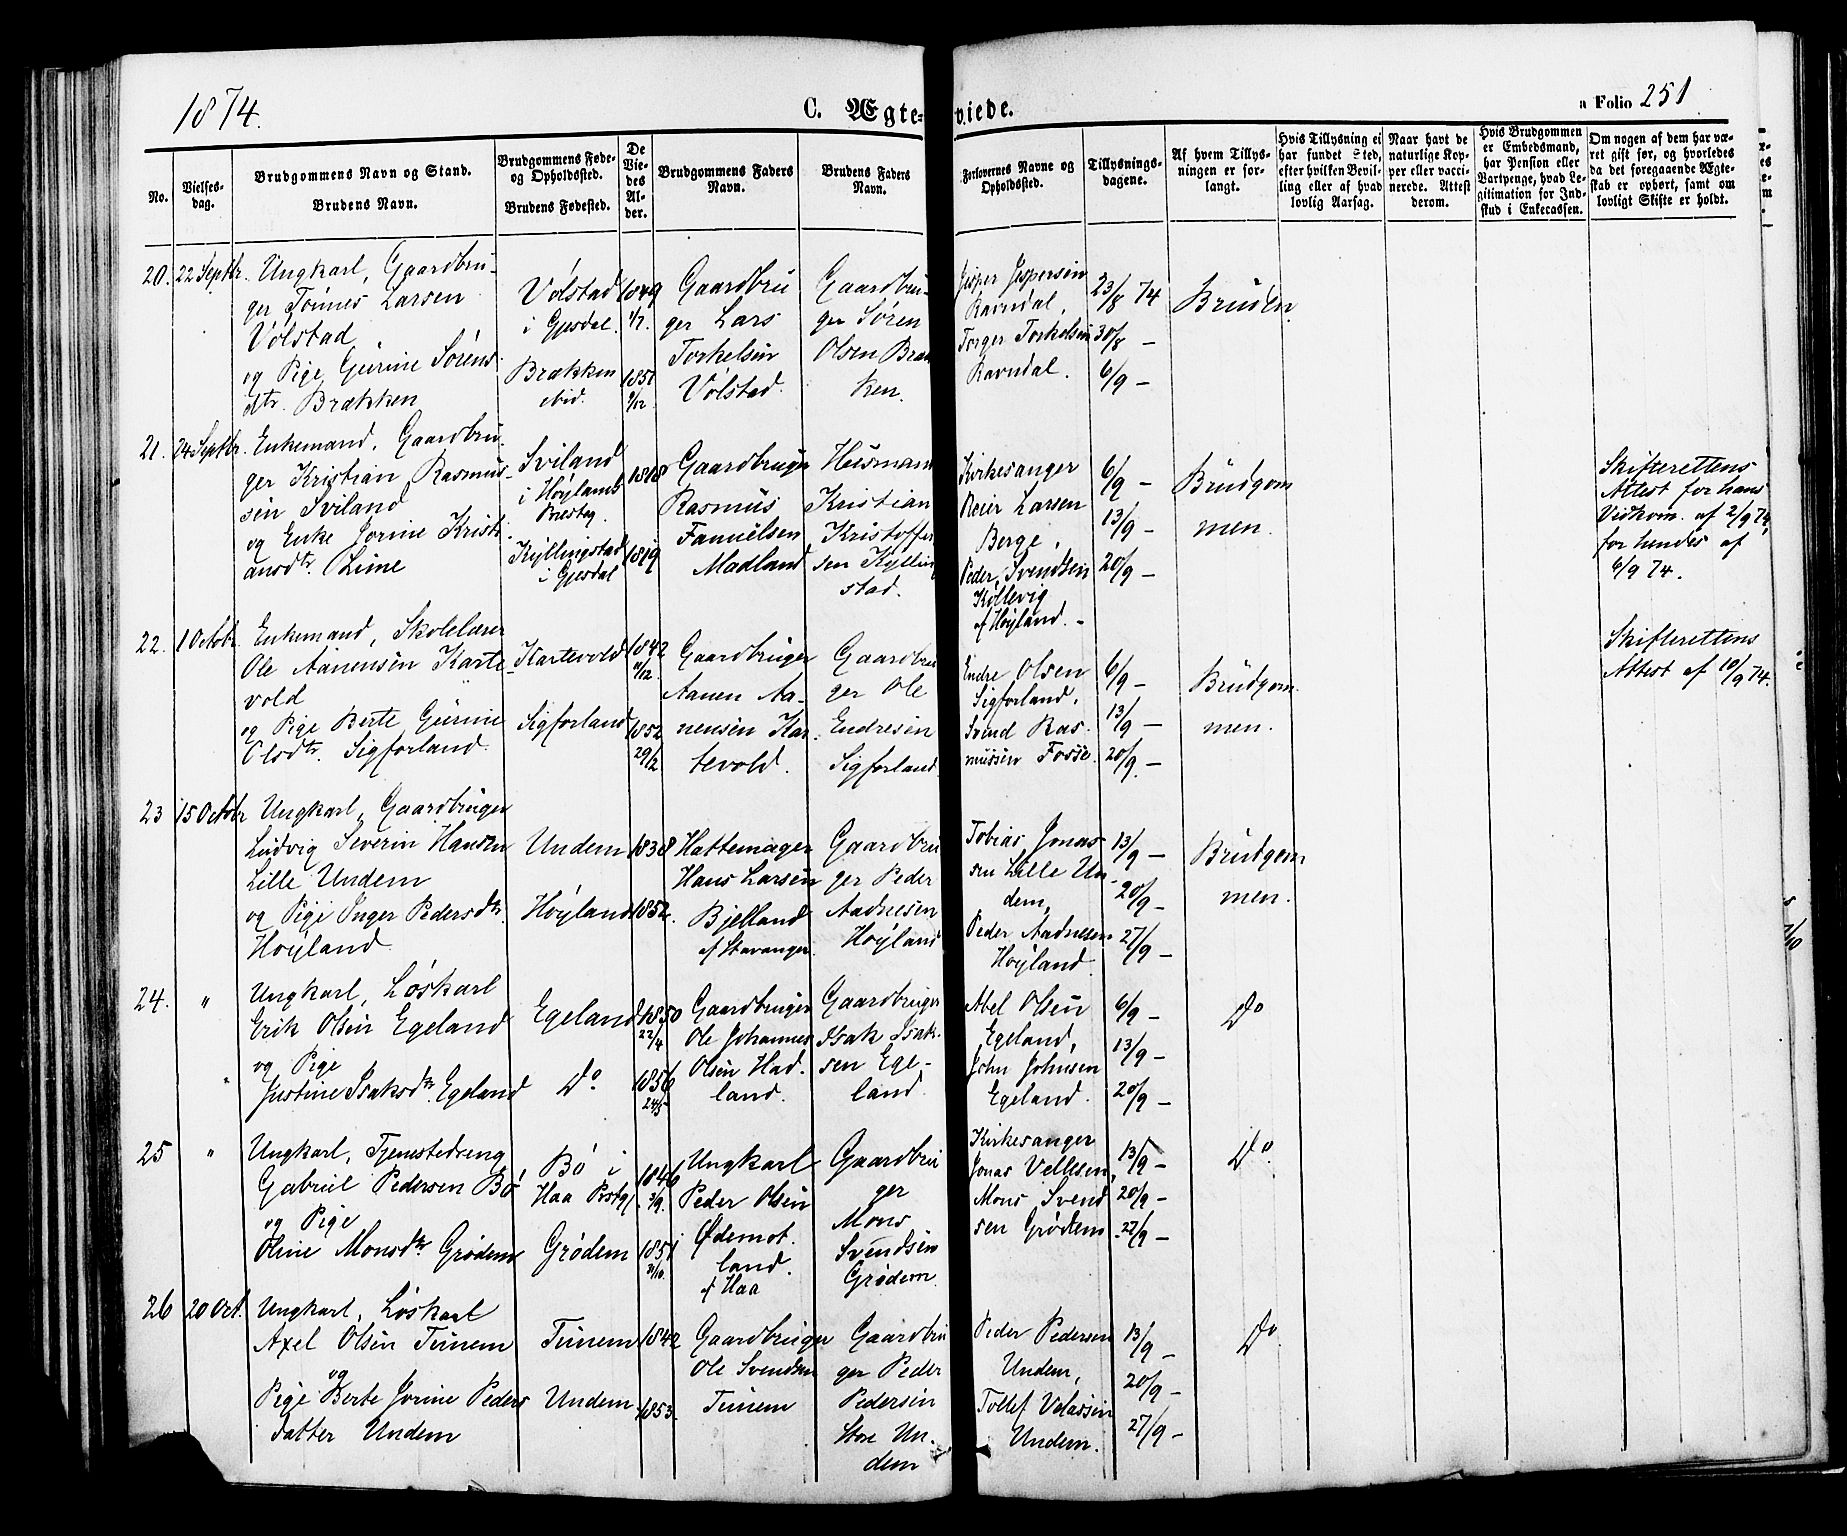 1874.
C. Ægteviede.
a Folio 251
No.
Vielsesdag.
Brudgommens Navn og Stand.
Brudens Navn.
Brudgommens Føde- og Opholdssted.
Brudens Fødested.
De Viedes Alder.
Brudgommens Faders Navn.
Brudens Faders Navn.
Forlovernes Navne og Opholdssted.
Tillysningsdagene.
Af hvem Tillysningen er forlangt.
Hvis Tillysning ei har fundet Sted, efter hvilken Bevilling eller af hvad lovlig Aarsag.
Naar havt de naturlige Kopper eller vaccinerede. Attest derom.
Hvis Brudgommen er Embedsmand, har Pension eller Vartpenge, hvad Legitimation for Indskud i Enkecassen.
Om nogen af dem har været gift før, og hvorledes da det foregaaende Ægteskab er ophørt, samt om lovligt Skifte er holdt.
20. 22 Septbr.
Ungkarl, Gaardbru-
ger Tønnes Larsen
Volstad
og Pige Gurine Sørens-
dtr. Brækken
Volstad
i Gjesdal.
Brækken
ibid.
1849
1/7.
1851
9/12.
Gaardbru
ger Lars
Torkelsen
Volstad.
Gaardbru-
ger Søren
Olsen Bræk
ken.
Jesper Jespersen
Ravndal,
Torger Torkelsen
Ravndal.
23/8 74
30/8 -
6/9 -
Bruden.
21. 24 Septbr.
Enkemand, Gaardbru-
ger Kristian Rasmus-
sen Sviland
og Enke Jorine Kristi-
ansdtr. Lime
Sviland
i Høylands
Presteg.
Kyllingstad
i Gjesdal
1818
1819
Gaardbruger
Rasmus
Samuelsen
Madland
Husmand
Kristian
Kristoffer
sen Kylling
stad.
Kirkesanger
Reier Larsen
Berge,
Peder Svendsen
Kollevig
af Høyland. -
6/9 -
13/9 -
20/9 -
Brudgom
men.
Skifterettens
Attest for hans
Vedkom. af 2/9 74,
for hendes af
6/9 74.
22. 1 Octobr.
Enkemand, Skolelærer
Ole Aanensen Karte-
vold
og Pige Berte Gurine
Olsdtr. Sigforland.
Kartevold
Sigforland
1842
11/12.
1852
29/2
Gaardbruger
Aanen Aa-
nensen Kar-
tevold.
Gaardbru
ger Ole
Endresen
Sigforland.
Endre Olsen
Sigforland,
Svend Ras-
mussen Fosse.
6/9 -
13/9 -
20/9. -
Brudgom
men.
Skifterettens
Attest af 10/9 74.
23 15 Octobr
Ungkarl, Gaardbruger
Ludvig Severin Hansen
Lille Undem
og Pige Inger Pedersdtr.
Høyland
Undem
Høyland
1838
1852.
Hattemager
Hans Larsen
Bjelland
af Stavanger.
Gaardbru
ger Peder
Aadnesen
Høyland
Tobias Jonas-
sen Lille Un-
dem,
Peder Aadnesen
Høyland.
13/9 -
20/9 -
27/9 -
Brudgom
men.
24. "
Ungkarl, Løskarl
Erik Olsen Egeland
og Pige
Justine Isaksdtr. Egeland
Egeland
Do
1850
22/4
1856
24/5
Gaardbruger
Ole Johannes
Olsen Had-
land.
Gaardbruger
Isak Isak-
sen Ege-
land.
Abel Olsen
Egeland,
John Johnsen
Egeland.
6/9 -
13/9 -
20/9 -
Do
25 "
Ungkarl, Tjenestedreng
Gabriel Pedersen Bø
og Pige
Oline Monsdtr Grødem
Bø i
Haa Prstgj.
Grødem
1846
3/9.
1851
31/10.
Ungkarl
Peder Olsen
Ødemot-
land.
af Haa
Gaardbru
ger
Mons
Svendsen
Grødem.
Kirkesanger
Jonas Vellesen,
Mons Svend
sen Grødem
13/9 -
20/9 -
27/9 -
Do.
26 20 Oct.
Ungkarl, Løskarl
Axel Olsen Tunem
og
Pige Berte Jorine Peders
datter Undem
Tunem
Undem
1842
1853.
Gaardbruger
Ole Svendsen
Tunem
Gaardbru
ger Peder
Pedersen
Store Un-
dem
Peder Pedersen
Undem,
Tollef Velassen
Undem.
13/9 -
20/9 -
27/9 -
Do